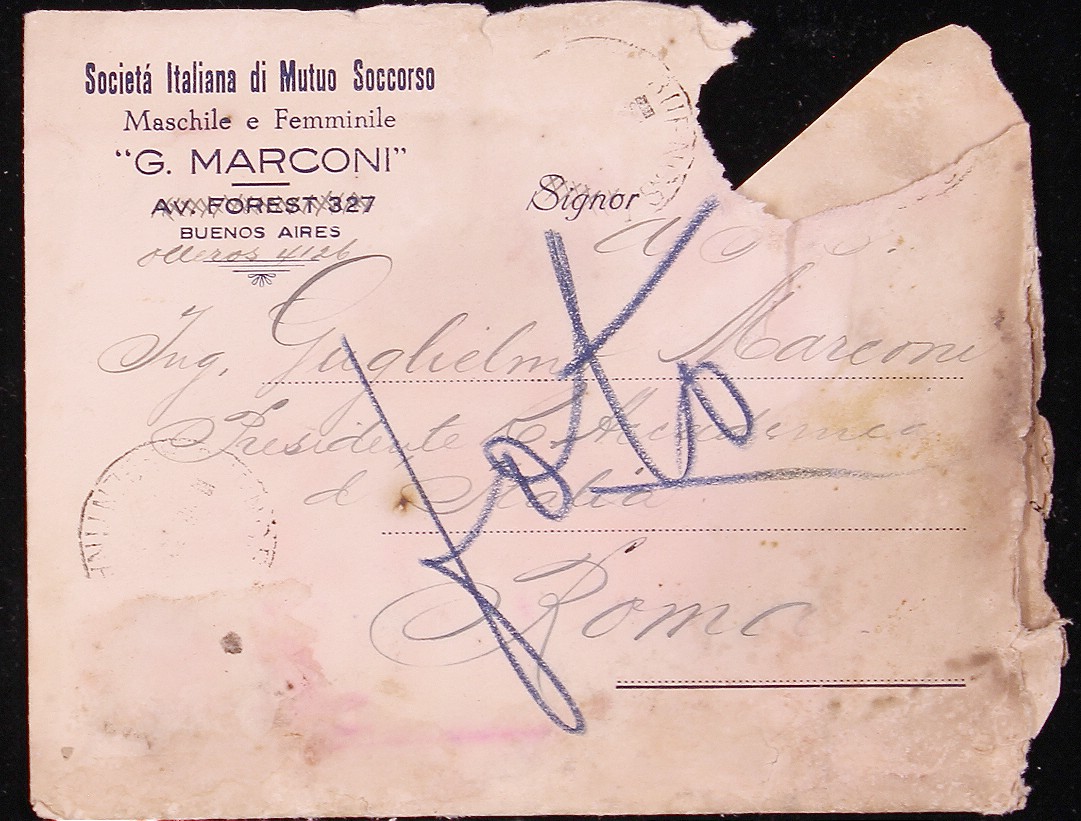 Societá Italiana di Mutuo Soccorso
Maschile e Femminile
"G. MARCONI"
AV. FOREST 327
BUENOS AIRES
olleros 4126
Signor
A S. E.
Ing. Guglielmo Marconi
Presidente R. Accademia
d'Italia
Roma
foto